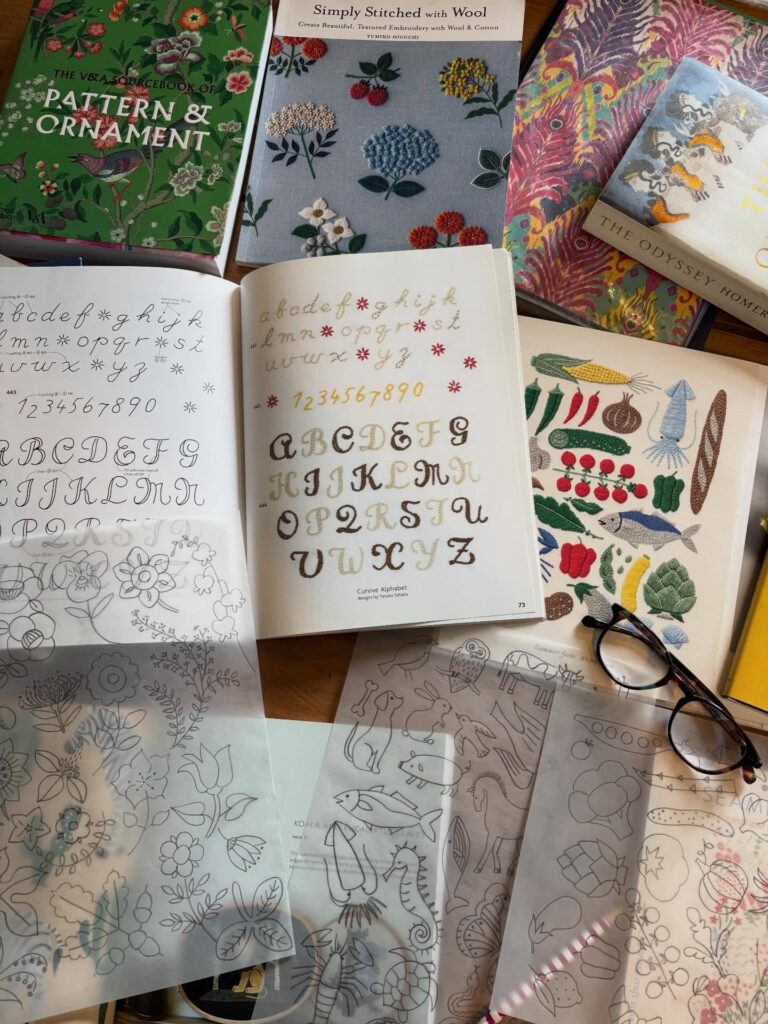 THE V&A SOURCEBOOK OF
PATTERN &
ORNAMENT
V&A
Simply Stitched with Wool
Create Beautiful, Textured Embroidery with Wool & Cotton
YUMIKO HIGUCHI
THE ODYSSEY HOMER
abcdef ghijk
lmn opqr st
uvwx yz
443
1234567890
ABCDEFG
HIJKLMN
OPQRSTU
abcdef ghijk
lmn opqr st
uvwx yz
1234567890
ABCDEFG
HIJKLMN
OPQRSTU
VWXYZ
Cursive Alphabet
73
KOALA